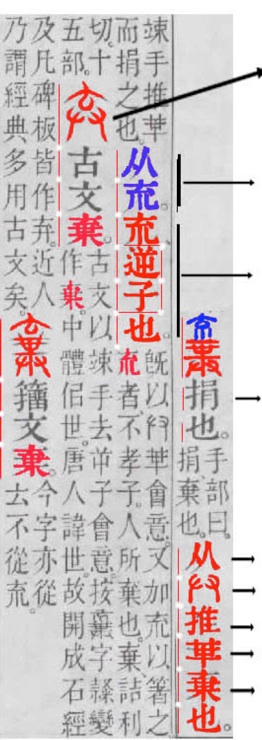 棄捐也。手部曰。捐棄也。从𠬞推𠦒棄也。
竦手推𠦒而捐之也。从𠫓。𠫓逆子也。既以𠬞𠦒會意。又加𠫓以箸之。𠫓者不孝子。人所棄也。棄詰利
切。十五部。弃古文棄。古文以竦手去屰子會意。按棄字隸變作棄。中體佀世。唐人諱世。故開成石經
及凡碑板皆作弃。近人乃謂經典多用古文矣。𠅏籒文棄。今字亦從去不從𠫓。